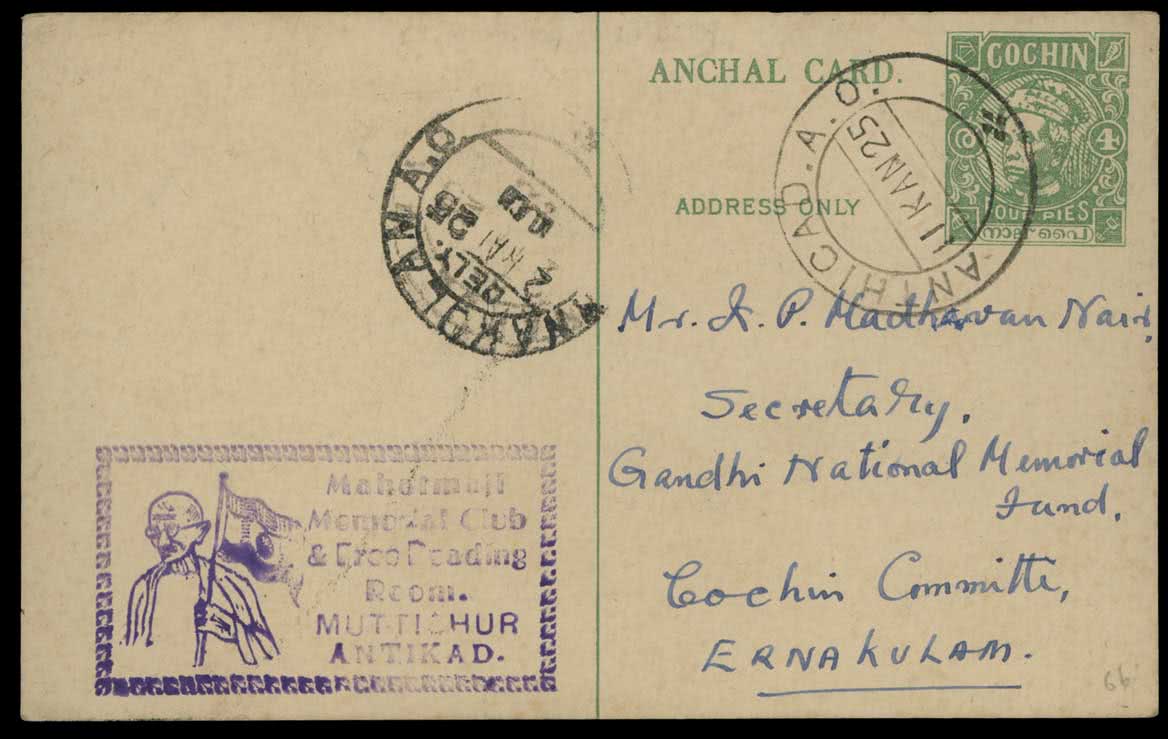 ANCHAL CARD.
COCHIN
4
FOUR PIES
നാലു പൈ
ADDRESS ONLY
ANTHICAD. A. O.
11 KAN 25
A.O.
DELY.
25
Mr. K. P. Madhavan Nair,
Secretary,
Gandhi National Memorial
Fund,
Cochin Committe,
ERNAKULAM.
Mahatmaji
Memorial Club
& Free Reading
Room.
MUTTICHUR
ANTIKAD.
66